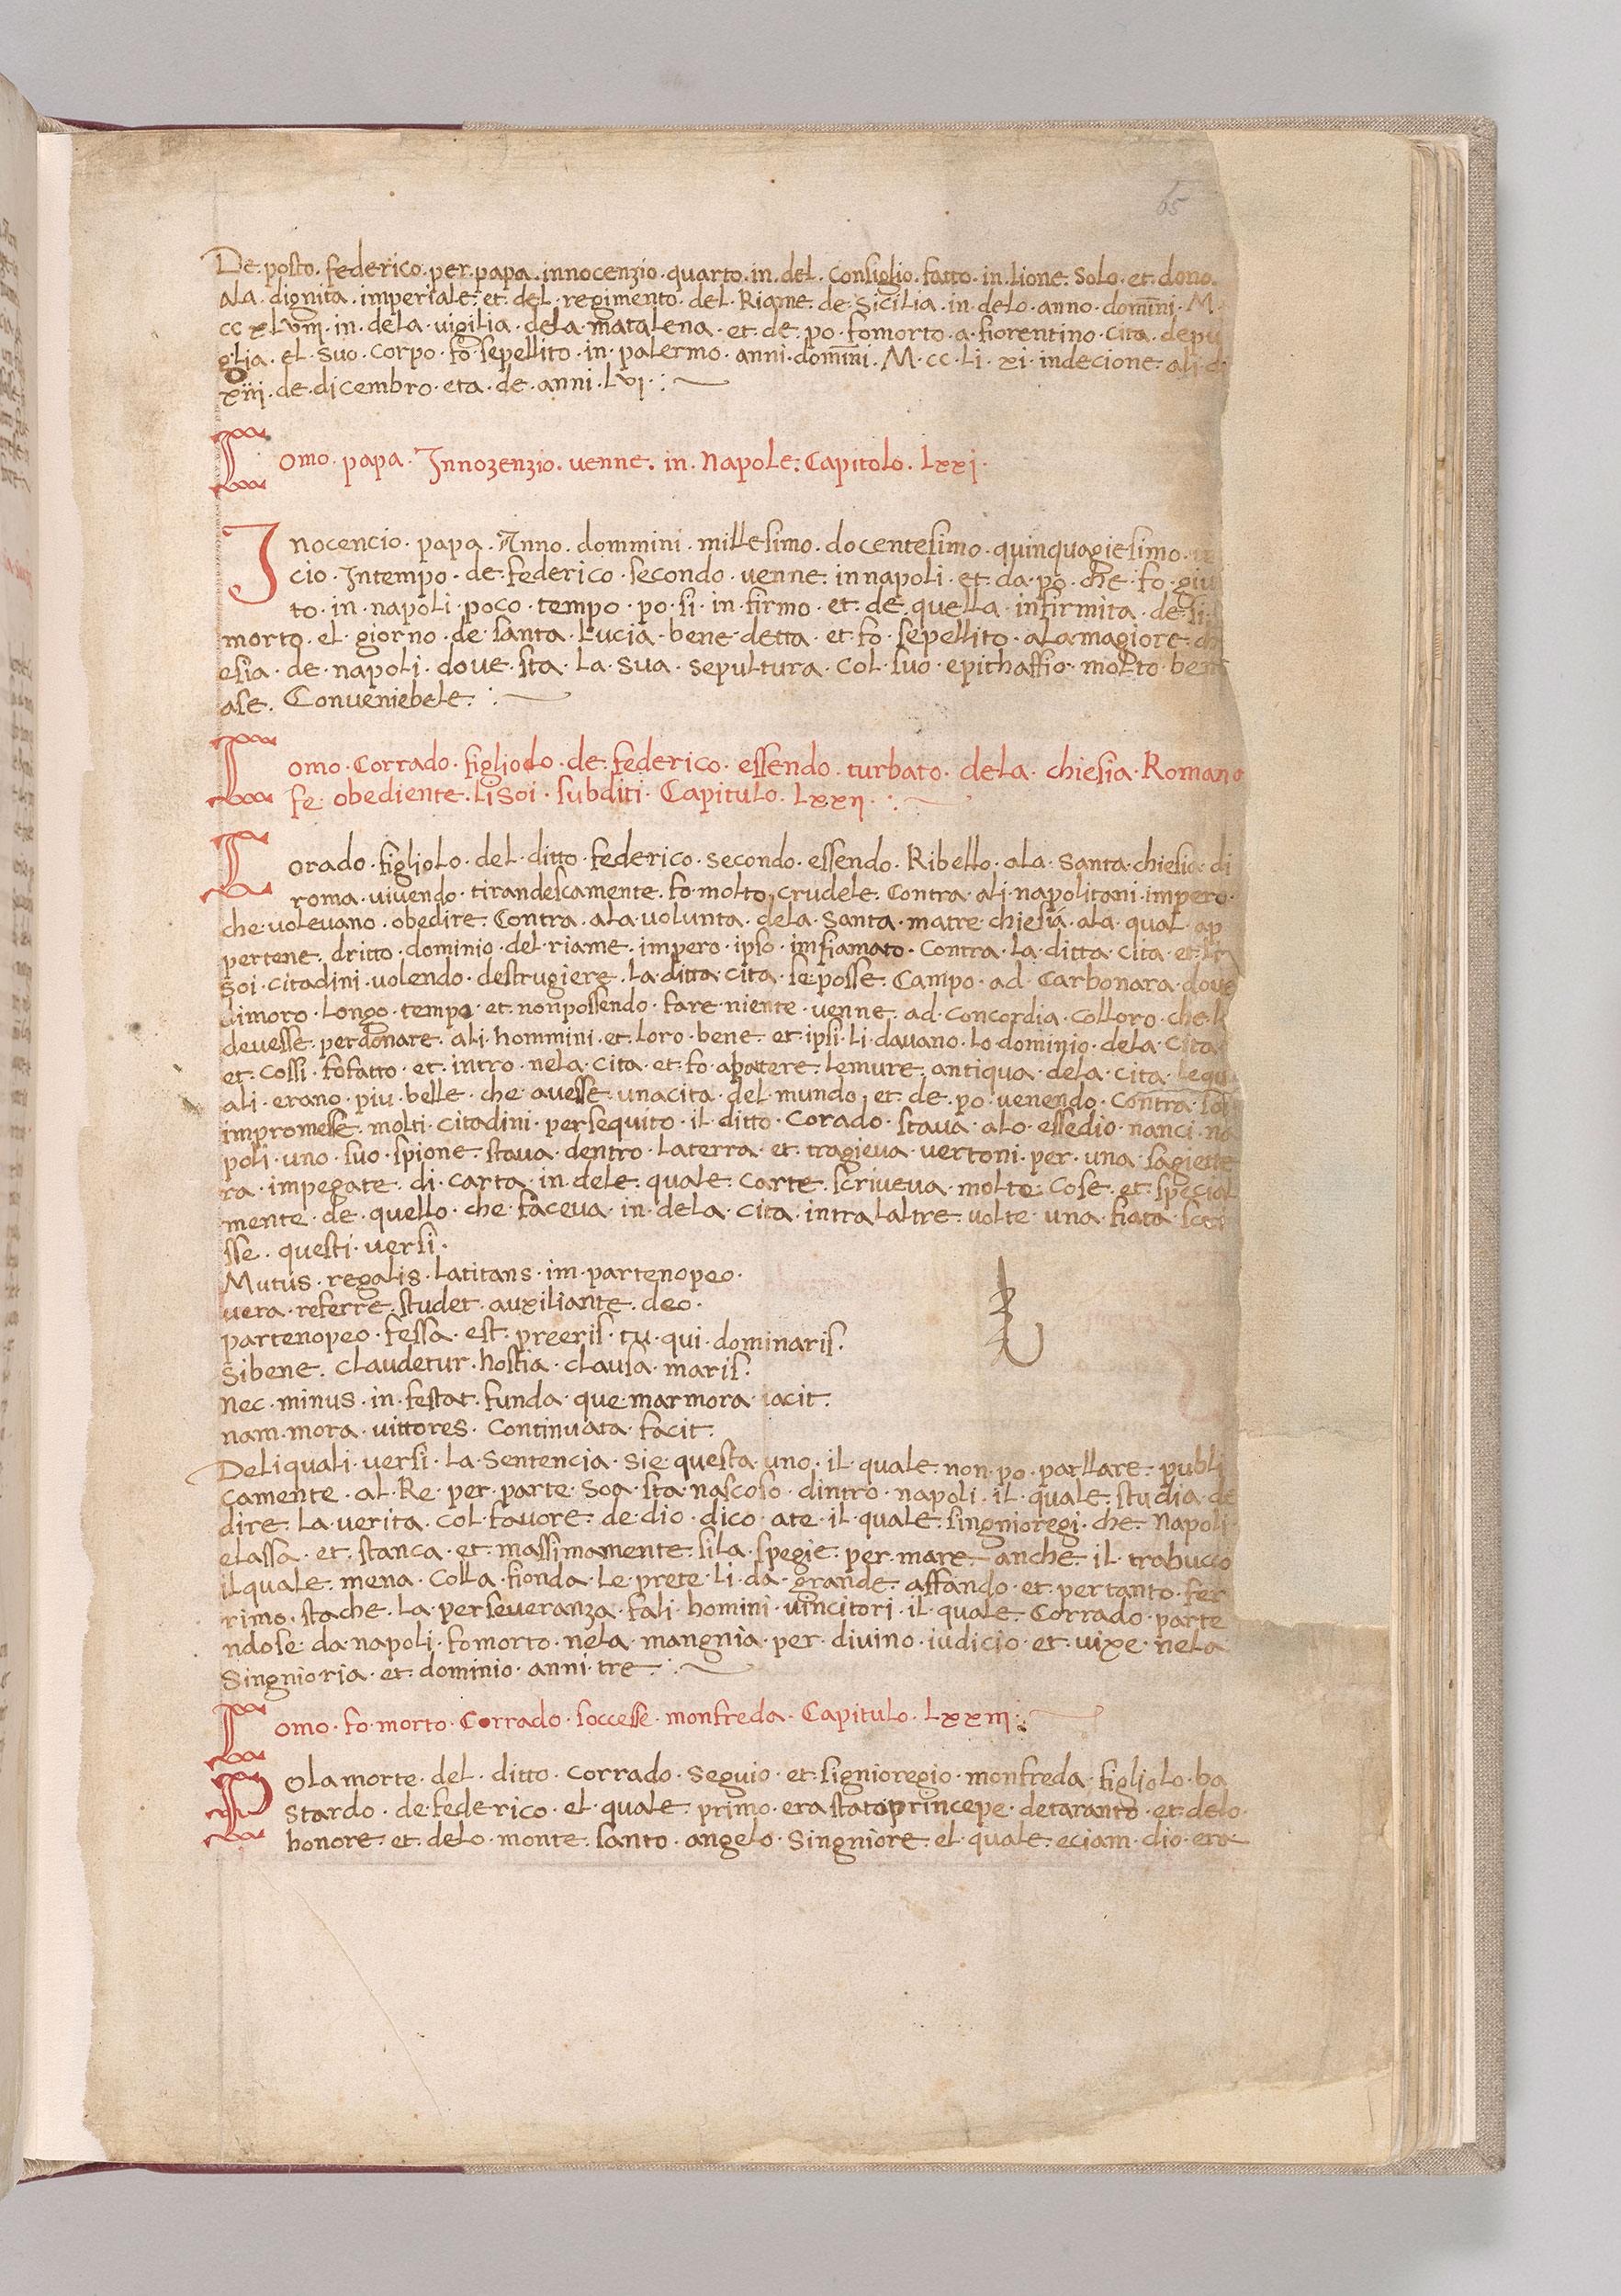 65
De posto. federico. per. papa. innocenzio. quarto. in. del. consiglio. fatto. in. lione. solo. et. dono.
ala. dignita. imperiale. et. del. regimento. del. Riame. de. Sicilia. in. delo. anno. domini. M.
cc xLviii. in. dela. vigilia. dela. matalena. et. de. po. fo morto. a. fiorentino. cita. de pu
glia. el. suo. corpo. fo. sepellito. in. palermo. anni. domini. M. cc. Li. xi. indecione. ali. di
xiii. de. dicembro. eta. de. anni. Lvi.
Como. papa. Innozenzio. venne. in. Napole. Capitolo. Lxxi.
Inocencio. papa. Anno. dommini. millesimo. docentesimo. quinquagiesimo.
cio. In tempo. de. federico. secondo. venne. in napoli. et. da. po. che. fo. giu
to. in. napoli. poco. tempo. po. si. in. firmo. et. de. quella. infirmita. de.
morto. el. giorno. de. santa. Lucia. bene detta. et. fo. sepellito. ala magiore. ch
esia. de. napoli. dove. sta. la. sua. sepultura. col. suo. epithaffio. molto. bene
ase. Conveniebele.
Como. Corrado. figliolo. de. federico. essendo. turbato. dela. chiesia. Romana
fe. obediente. Li soi. subditi. Capitulo. Lxxii.
Corado. figliolo. del. ditto. federico. secondo. essendo. Ribello. ala. santa. chiesia. di
roma. vivendo. tirandescamente. fo. molto. crudele. contra. ali. napolitani. impero.
che. volevano. obedire. contra. ala. volunta. dela. santa. matre. chiesia. ala. qual. ap
pertene. dritto. dominio. del. riame. impero. ipso. infiamato. contra. la. ditta. cita. et. li
soi. citadini. volendo. destrugiere. la. ditta. cita. se. posse. campo. ad. Carbonara. dove
dimoro. longo. tempo. et. non possendo. fare. niente. venne. ad. concordia. colloro. che. li
devesse. perdonare. ali. hommini. et. loro. bene. et. ipsi. li. davano. lo. dominio. dela. cita
et. cossi. fo fatto. et. intro. nela. cita. et. fo. abatere. le mure. antiqua. dela. cita. le qu
ali. erano. piu. belle. che. avesse. una cita. del. mundo. et. de. po. venendo. contra. soi
impromesse. molti. citadini. persequito. il. ditto. Corado. stava. alo. essedio. nanci. na
poli. uno. suo. spione. stava. dentro. la terra. et. tragieva. vertoni. per. una. sagiette
ra. impegate. di. carta. in. dele. quale. carte. scriveva. molte. cose. et. special
mente. de. quello. che. faceva. in. dela. cita. intra l altre. volte. una. fiata. scri
sse. questi. versi.
Mutus. regalis. latitans. im. partenopeo.
vera. referre. studet. auxiliante. deo.
partenopeo. fessa. est. preeris. tu. qui. dominaris.
Si bene. claudetur. hostia. clausa. maris.
Nec. minus. in. festat. funda. que. marmora. iacit.
nam. mora. vittores. continuata. facit.
Deli quali. versi. la. sentencia. sie. questa. uno. il. quale. non. po. parllare. publi
camente. al. Re. per. parte. soa. sta. nascoso. dintro. napoli. il. quale. studia. de
dire. la. verita. col. favore. de. dio. dico. a te. il. quale. singnioregi. che. Napoli.
e lassa. et. stanca. et. massimamente. si la. spegie. per. mare. anche. il. trabucco
il quale. mena. colla. fionda. le. prete. li. da. grande. affando. et. per tanto. fer
rimo. sta che. la. perseveranza. fa li. homini. vincitori. il. quale. Corrado. parte
ndose. da. napoli. fo morto. nela. mangnia. per. divino. iudicio. et. vixe. nela
Singnioria. et. dominio. anni. tre.
Como. fo. morto. Corrado. soccesse. monfreda. Capitulo. Lxxiii.
Po la morte. del. ditto. Corrado. seguio. et. signioregio. monfreda. figliolo. ba
stardo. de. federico. el. quale. primo. era stato princepe. de taranto. et. delo.
honore. et. delo. monte. santo. angelo. Singniore. el. quale. eciam. dio. era